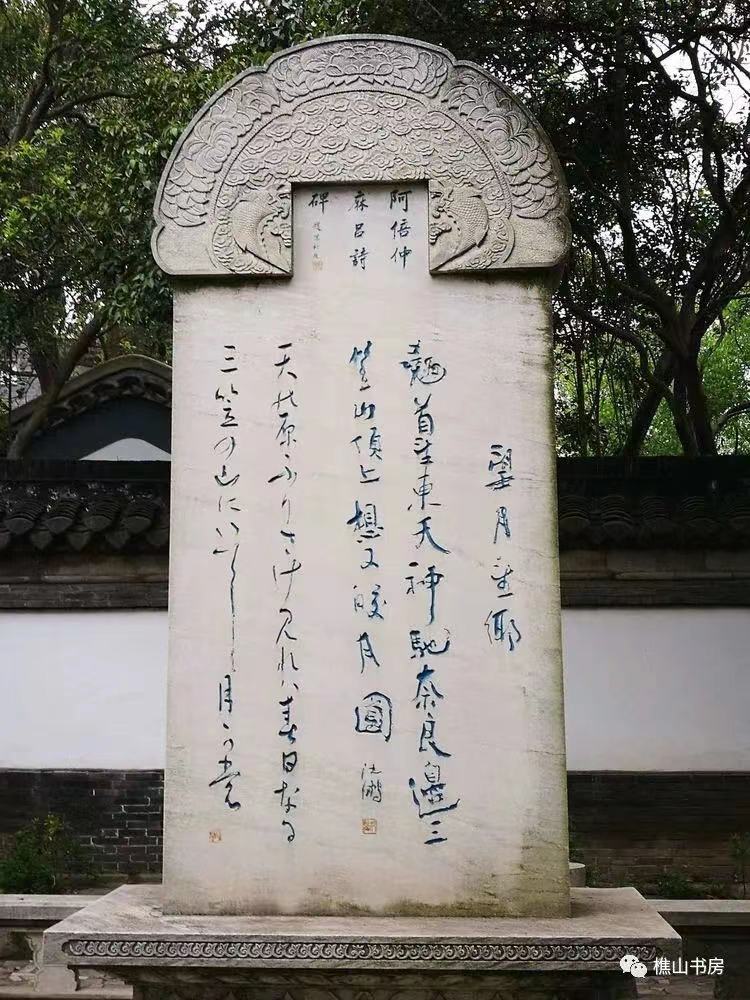 阿倍仲
麻呂詩
碑
望月望鄉
翹首望東天神馳奈良邊三
笠山頂上想又皎月圓
沈鵬
天の原ふりさけ見れハ春日なる
三笠の山にいでし月可裳
樵山书房